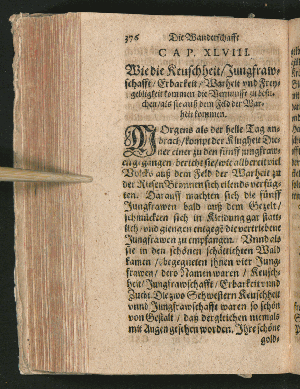 376 Die Wanderschafft
CAP. XLVIII.
Wie die Keuschheit / Jungfraw-
schafft / Erbarkeit / Warheit vnd Frey-
gebligkeit kommen die Vernunfft zu besu-
chen / als sie auß dem Feld der War-
heit kommen.
MOrgens als der helle Tag an-
brach / kompt der Klugheit Die-
ner einer zu den fünff jungfrawe
eingegangen / berichtet sie / wie allbereit viel
Volcks auß dem Feld der Warheit zu
der Riesen Brunnen sich eilends verfüg-
ten. Darauff machten sich die fünff
Jungfrawen bald auß dem Gezelt /
schmückten sich in Kleidung gar statt-
lich / vnd giengen entgege die vertriebene
Jungfrawen zu empfangen. Vnnd als
sie in den schönen schättichten Wald
kamen / begegneten ihnen vier Jung-
frawen / dero Namen waren / Keusch-
heit / Jungfrawschafft / Erbarkeit vnd
Zucht. Die zwo Schwestern Keuschheit
vnnd Jungfrawschafft waren so schön
von Gestalt / daß dergleichen niemals
mit Augen gesehen worden. Ihre schöne
gold-